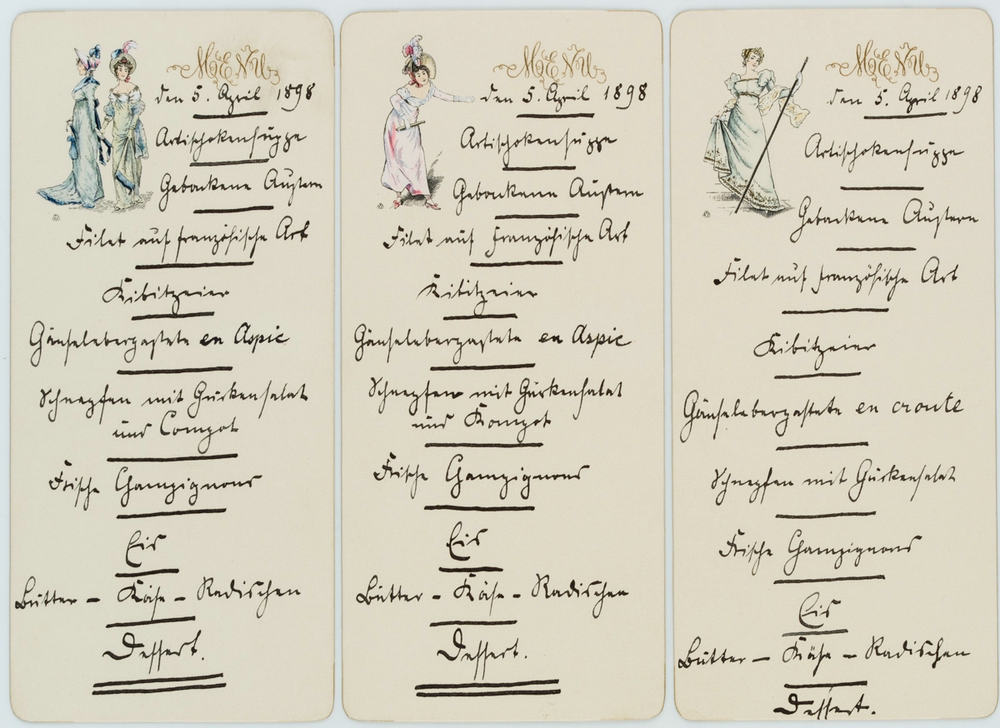 MENU
den 5. April 1898
Artischokensuppe
Gebackene Austern
Filet auf französische Art
Kibitzeier
Gänseleberpastete en Aspic
Schnepfen mit Gurkensalat
und Compot
Frische Champignons
Eis
Butter – Käse – Radischen
Dessert.
MENU
den 5. April 1898
Artischokensuppe
Gebackene Austern
Filet auf französische Art
Kibitzeier
Gänseleberpastete en Aspic
Schnepfen mit Gurkensalat
und Kompot
Frische Champignons
Eis
Butter – Käse – Radischen
Dessert.
MENU
den 5. April 1898
Artischokensuppe
Gebackene Austern
Filet auf französische Art
Kibitzeier
Gänseleberpastete en croute
Schnepfen mit Gurkensalat
Frische Champignons
Eis
Butter – Käse – Radischen
Dessert.